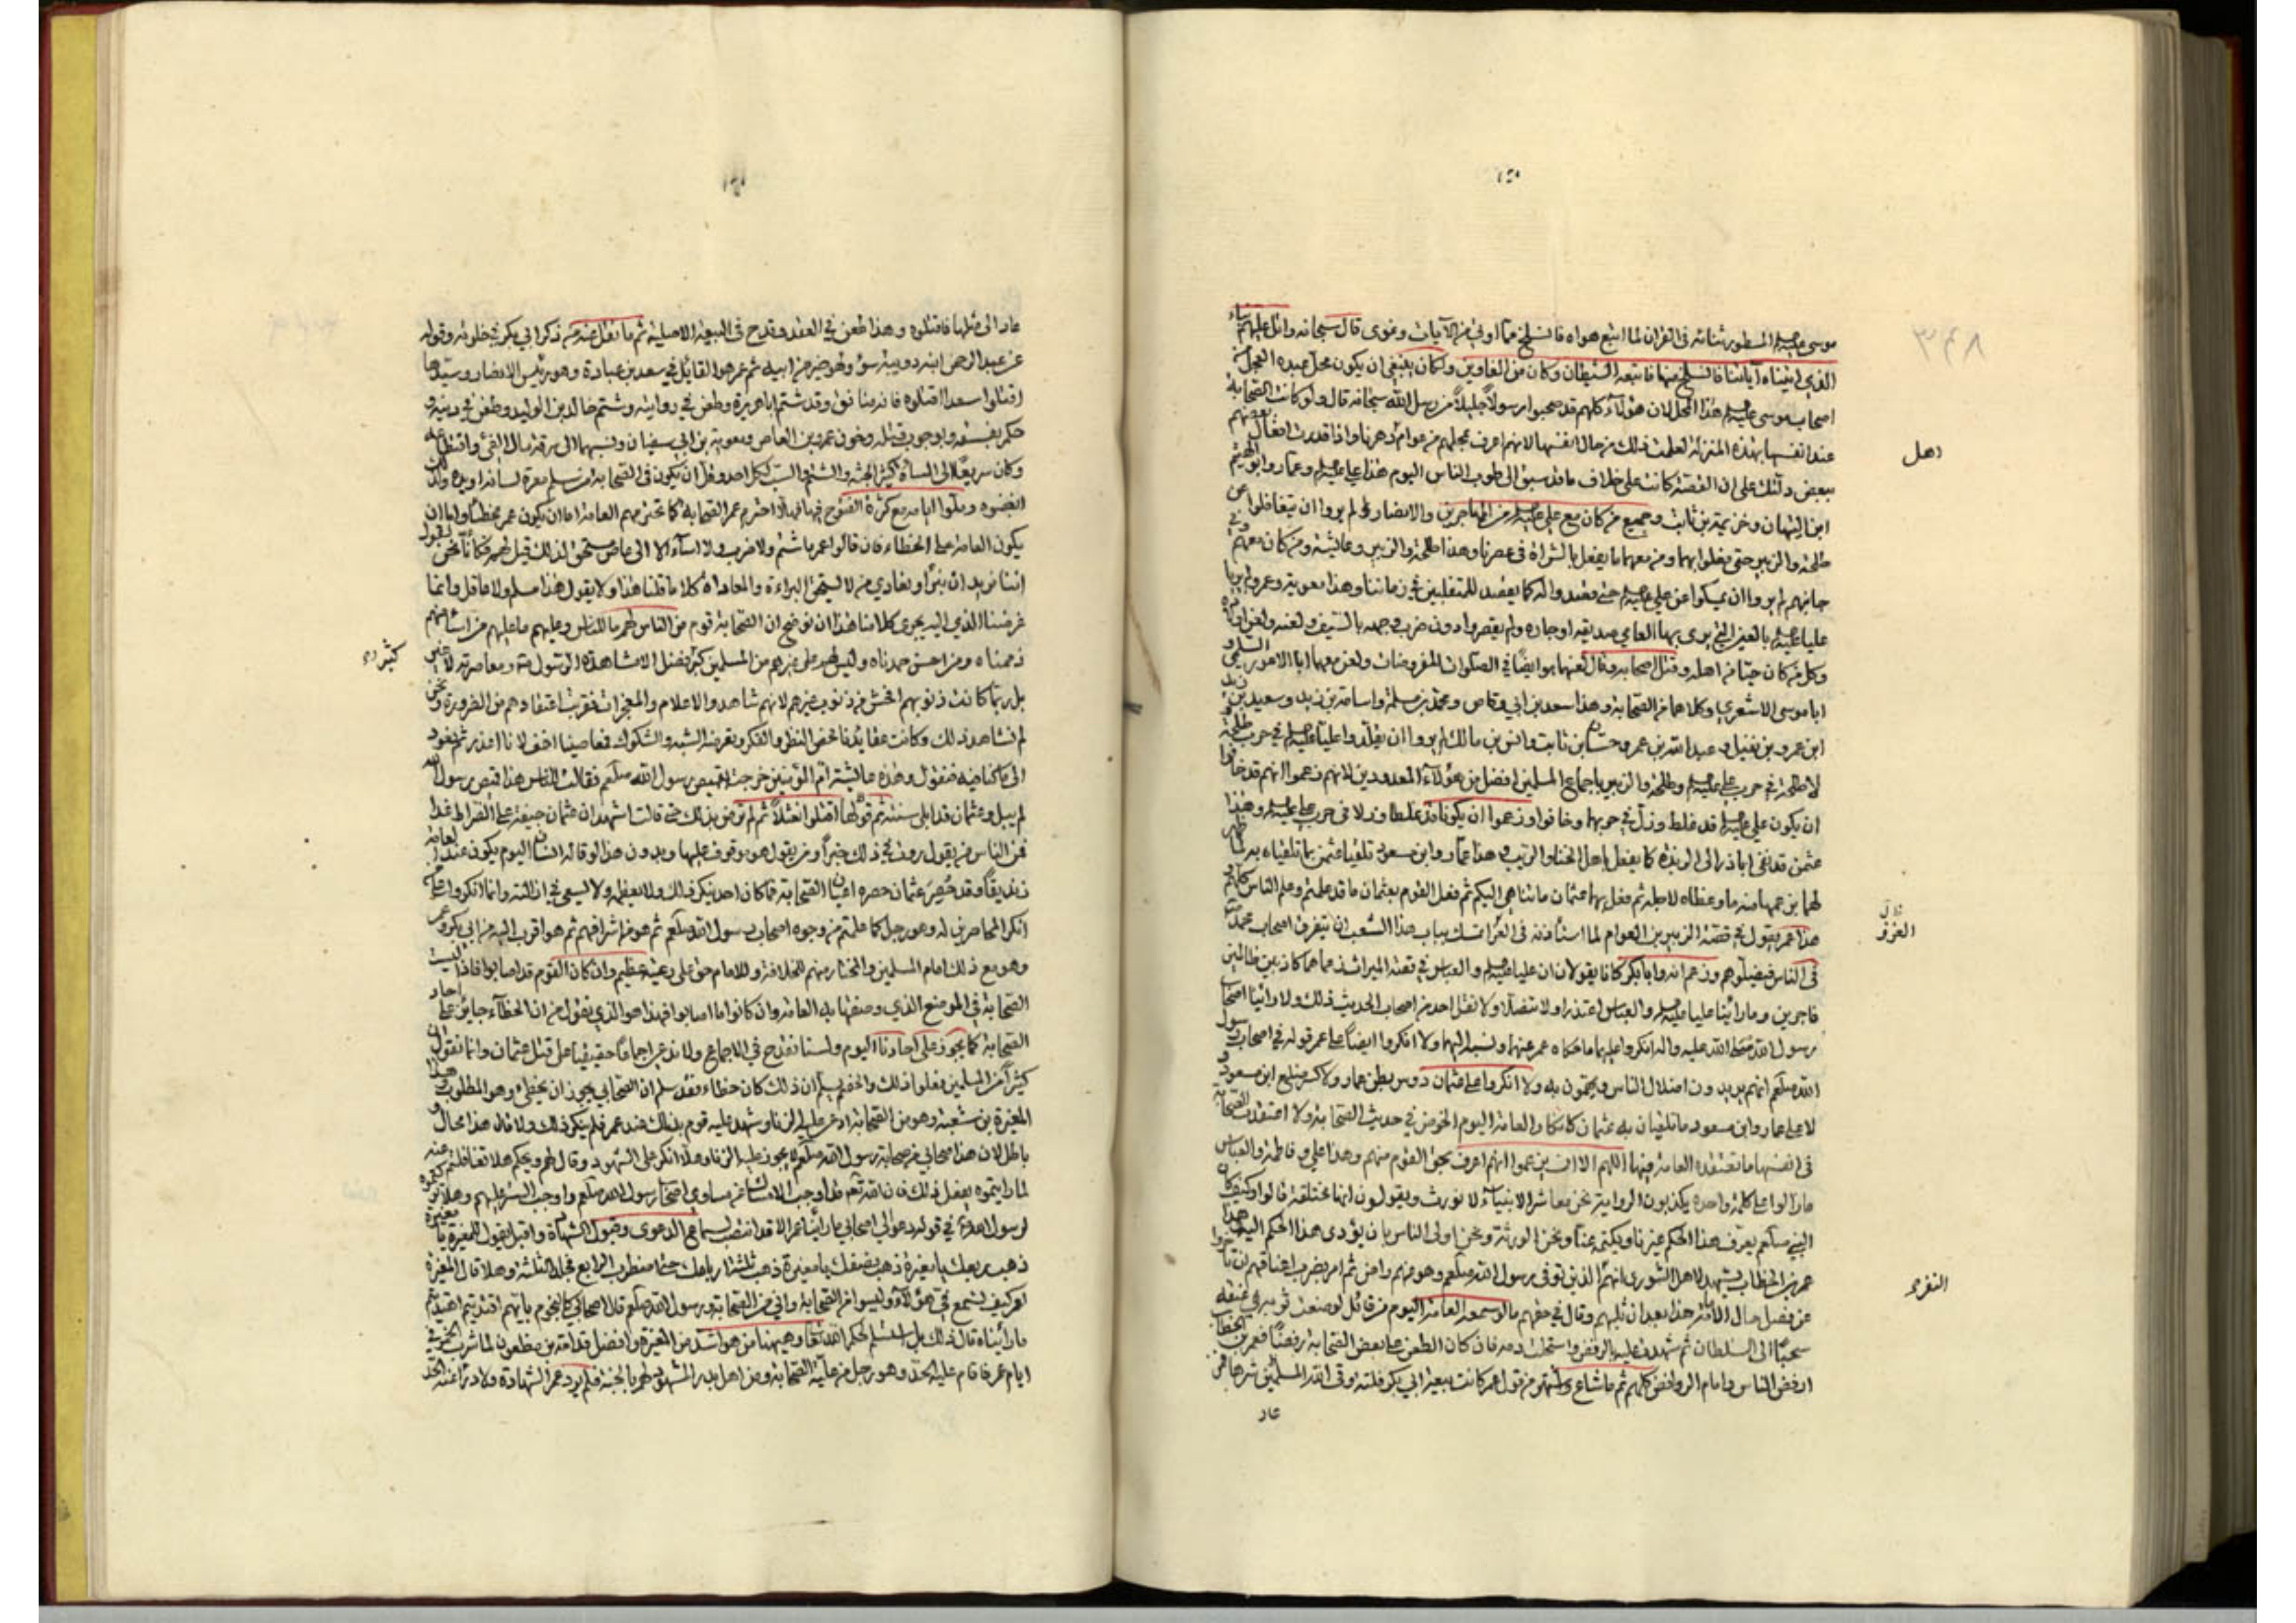 ٣٤٨
موسى عليه السلم المسطور ثنائه في القران لما اتبع هواه فانسلخ مما اوتي من الآيات وغوى قال سبحانه واتل عليهم نباء
الذي اتيناه آياتنا فانسلخ منها فاتبعه الشيطان وكان من الغاوين ولكان ينبغي ان يكون محل عبده العجل من
اصحاب موسى عليه السلم هذا المحل لان هؤلآء كلهم قد صحبوا رسولاً جليلاً من رسل الله سبحانه قال ولو كانت الصحابة
عند انفسها بهذه المنزلة لعلمت ذلك من حال انفسها لانهم اعرف بمحلهم من عوام دهرنا واذا قدرت افعال بعضهم
دهل
ببعض دلتك على ان القصة كانت على خلاف ما قد سبق الى قلوب الناس اليوم هذا علي عليه السلم وعمار وابو الهيثم
ابن التيهان وخزيمة بن ثابت وجميع من كان مع علي عليه السلم من المهاجرين والانصار لم يروا ان يتغافلوا عن
طلحة والزبير حتى فعلوا بهما ومن معهما ما يفعل بالشراة في عصرنا وهذا طلحة والزبير وعايشة ومن كان معهم وفي
جانبهم لم يروا ان يمسكوا عن علي عليه السلم حتى قصدوا له كما يقصد للمتغلبين في زماننا وهذا معوية وعمرو لم يريا
عليا عليه السلم بالعين التي يرى بها العامي صديقه او جاره ولم يقصروا دون ضرب وجهه بالسيف ولعنه ولعن اولاده
وكل من كان حيّا من اهله وقتل اصحابه وقد لعنهما هو ايضًا في الصلوات المفروضات ولعن معهما ابا الاعور السلمي و
ابا موسى الاشعري وكلاهما من الصحابة وهذا سعد بن ابي وقاص ومحمد بن مسلمة واسامة بن زيد وسعيد بن زيد
ابن عمرو بن نفيل وعبد الله بن عمر وحسان بن ثابت وانس بن مالك لم يروا ان يقلدوا عليا عليه السلم في حرب طلحة
لا طلحة في حرب علي عليه السلم وطلحة والزبير باجماع المسلمين افضل من هؤلآء المعدودين لانهم زعموا انهم قد خافوا
ان يكون علي عليه السلم قد غلط وزلّ في حربهما وخافوا وزعموا ان يكونا قد غلطا وزلا في حرب علي عليه السلم وهذا
عثمن قد نفى ابا ذر الى الربذة كما يفعل باهل الخنا والريب وهذا عمار وابن مسعود تلقيا عثمن بما تلقياه به لما ظهر
لهما بزعمهما منه ما وعظاه لاجله ثم فعل بهما عثمان ما تناهى اليكم ثم فعل القوم بعثمان ما قد علمتم وعلم الناس كلهم
هذا عمر يقول في قصة الزبير بن العوام لما استأذنه في الغزو امسك بباب هذا الشعب ان يتفرق اصحاب محمد
الغزو
في الناس فيضلّوهم وزعم انه وابا بكر كانا يقولان ان عليا عليه السلم والعباس في قصة الميراث زعماهما كاذبين ظالمين
فاجرين وما رأينا عليا عليه السلم والعباس اعتذرا ولا تنصلا ولا نقل احد من اصحاب الحديث ذلك ولا رأينا اصحاب
رسول الله صلى الله عليه واله انكروا عليهما ما حكاه عمر عنهما ونسبه اليهما ولا انكروا ايضًا على عمر قوله في اصحاب رسول
الله صلعم انهم يريدون اضلال الناس ويهمّون به ولا انكروا على عثمان دوس بطن عمار ولا كسر ضلع ابن مسعود و
لا على عمار وابن مسعود ما تلقيان به عثمان كانكار العامة اليوم الخوض في حديث الصحابة ولا اعتقدت الصحابة
في انفسها ما تعتقده العامة فيها اللهم الا ان يزعموا انهم اعرف بحق القوم منهم وهذا علي وفاطمة والعباس
ما زالوا على كلمة واحدة يكذبون الرواية نحن معاشر الانبيآء لا نورث ويقولون انها مختلقة قالوا وكيف كان
النبي صلعم يعرف هذا الحكم غيرنا ويكتمه عنّا ونحن الورثة ونحن اولى الناس بان يؤدى هذا الحكم اليه هذا
عمر بن الخطاب يشهد لاهل الشورى انهم الذين توفي رسول الله صلعم وهو عنهم راض ثم امر بضرب اعناقهم ان تأخروا
التفرى
عن فصل حال الامامة هذا بعد ان ثلبهم وقال في حقهم ما لو سمعه العامة اليوم من قائل لوضعت ثوبه في عنقه
سحبًا الى السلطان ثم شهدت عليه بالرفض واستحلت دمه فان كان الطعن على بعض الصحابة رفضًا فعمر بن الخطاب
ارفض الناس وامام الروافض كلهم ثم ما شاع واشتهر من قول عمر كانت بيعة ابي بكر فلتة وقى الله المسلمين شرها فمن
عاد
عاد الى مثلها فاقتلوه وهذا طعن في العقد وقدح في البيعة الاصلية ثم ما نقل عنه من ذكر ابي بكر في خلوته وقوله
عن عبد الرحمن ابنه دويبة سوء ولهو خير من ابيه ثم عمر هو القائل في سعد بن عبادة وهو رئيس الانصار وسيدها
اقتلوا سعدا اقتلوه فانه منافق وقد شتم ابا هريرة وطعن في روايته وشتم خالد بن الوليد وطعن في دينه و
حكم بفسقه وبوجوب قتله وخون عمرو بن العاص ومعوية بن ابي سفيان ونسبهما الى سرقة مال الفئ واقتطاعه
وكان سريعًا الى المسأة كثير الجبه والشتم والسب لكل احد وقل ان يكون في الصحابة من سلم من معرة لسانه او يده ولذلك
ابغضوه وملّوا ايامه مع كثرة الفتوح فيها فهلا احترم عمر الصحابة كما تحترمهم العامة اما ان يكون عمر مخطئًا واما ان
يكون العامة على الخطاء فان قالوا عمر ما شتم ولا ضرب ولا اسآء الا الى عاص مستحق لذلك قيل لهم فكأنّا نحن نقول
اننا نريد ان نبرأ ونعادي من لا يستحق البراءة والمعاداة كلا ما قلنا هذا ولا يقول هذا مسلم ولا عاقل وانما
غرضنا الذي اليه يجرى كلامنا هذا ان نوضح ان الصحابة قوم من الناس لهم ما للناس وعليهم ما عليهم من اسآء منهم
ذممناه ومن احسن حمدناه وليس لهم على غيرهم من المسلمين كبير فضل الا مشاهدة الرسول ومعاصرته لا غير
بل ربما كانت ذنوبهم افحش من ذنوب غيرهم لانهم شاهدوا الاعلام والمعجزات فقربت اعتقادهم من الضرورة ونحن
لم نشاهد ذلك وكانت عقايدنا محض النظر والفكر وبعرضة الشبه والشكوك فمعاصينا اخف لانا اعذر ثم نعود
الى ما كنا فيه فنقول وهذه عائشة ام المؤمنين خرجت بقميص رسول الله صلعم فقالت للناس هذا قميص رسول الله
لم يبل وعثمان قد ابلى سنته ثم قولها اقتلوا نعثلاً ثم لم ترض بذلك حتى قالت اشهد ان عثمان جيفة على الصراط غدا
فمن الناس من يقول روت في ذلك خبراً ومن يقول هو موقوف عليها وبدون هذا لو قاله انسان اليوم يكون عند العامة
زنديقًا وقد حصر عثمان حصره اعيان الصحابة فما كان احد ينكر ذلك ولا يعظمه ولا يسعى في ازالته وانما انكروا على من
انكر المحاصرين له وهو رجل كما علمتم من وجوه اصحاب رسول الله صلعم ثم هو من اشرافهم ثم هو اقرب اليه من ابي بكر وعمر
وهو مع ذلك امام المسلمين والمختار منهم للخلافة وللامام حق على رعيته عظيم وان كان القوم قد اصابوا فاذًا ليست
الصحابة في الموضع الذي وضعتها به العامة وان كانوا ما اصابوا فهذا هو الذي نقول من ان الخطآء جايز على احاد
الصحابة كما يجوز على احادنا اليوم ولسنا نقدح في الاجماع ولا ندعي اجماعًا حقيقيا على قتل عثمان وانما نقول ان
كثيرًا من المسلمين فعلوا ذلك والخصم يسلم ان ذلك كان خطاء فقد سلم ان الصحابي يجوز ان يخطئ وهو المطلوب وهذا
المغيرة بن شعبة وهو من الصحابة ادعي عليه الزنا وشهد عليه قوم بذلك عند عمر فلم ينكر ذلك ولا قال هذا محال و
باطل لان هذا صحابي من صحابة رسول الله صلعم لا يجوز عليه الزنا وهلا انكر على الشهود وقال لهم ويحكم هلا تغافلتم عنه
لما رايتموه يفعل ذلك فان الله تعالى قد اوجب الامساك عن مساوئ اصحاب رسول الله صلعم واوجب الستر عليهم وهلا تركتموه
لرسول الله في قوله دعوا لي اصحابي ما رأينا عمر الا قد انتصب لسماع الدعوى وقبول الشهادة واقبل يقول للمغيرة يا مغيرة
ذهب ربعك يا مغيرة ذهب نصفك يا مغيرة ذهب ثلثة ارباعك حتى اضطرب الرابع فجلد الثلثة وهلا قال المغيرة
لعمر كيف تسمع في قول هؤلآء وليسوا من الصحابة واني من الصحابة ورسول الله صلعم قال اصحابي كالنجوم بايهم اقتديتم اهتديتم
ما رأيناه قال ذلك بل استسلم لحكم الله تعالى وهيهنا من هو امثل من المغيرة وافضل قدامة بن مظعون لما شرب الخمر في
ايام عمر فاقام عليه الحد وهو رجل من علية الصحابة ومن اهل بدر المشهود لهم بالجنة فلم يرد عمر الشهادة ولا درأ عنه الحد